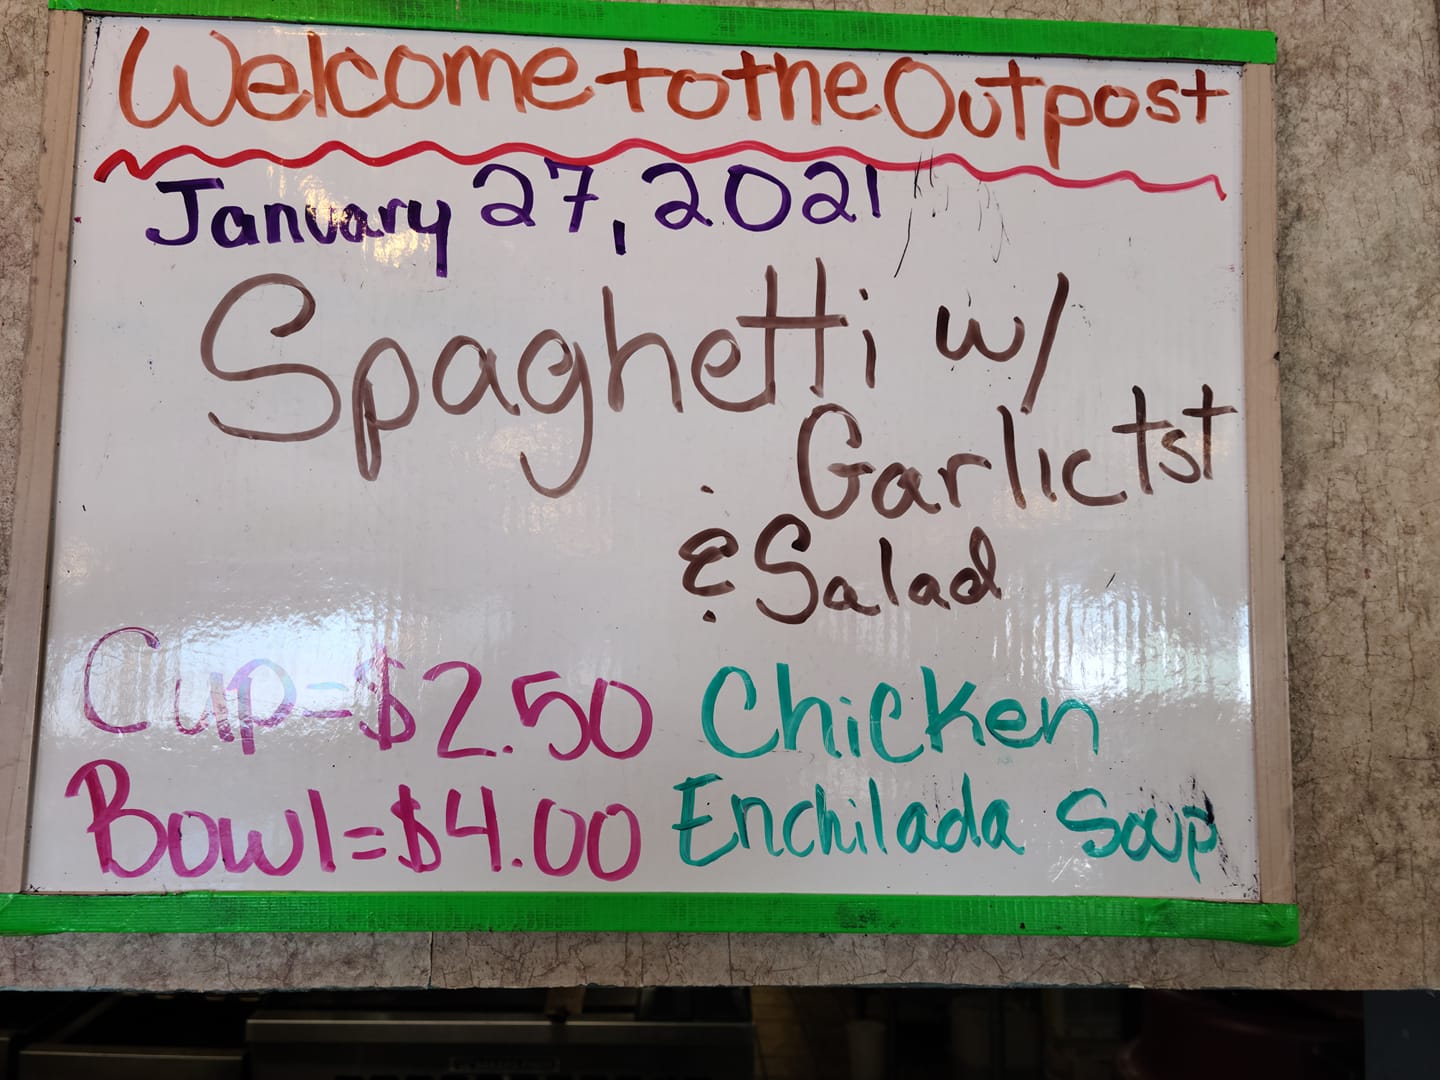 Welcome to the Outpost
January 27, 2021
Spaghetti w/
Garlic tst
& Salad
Cup=$2.50 Chicken
Bowl=$4.00 Enchilada Soup